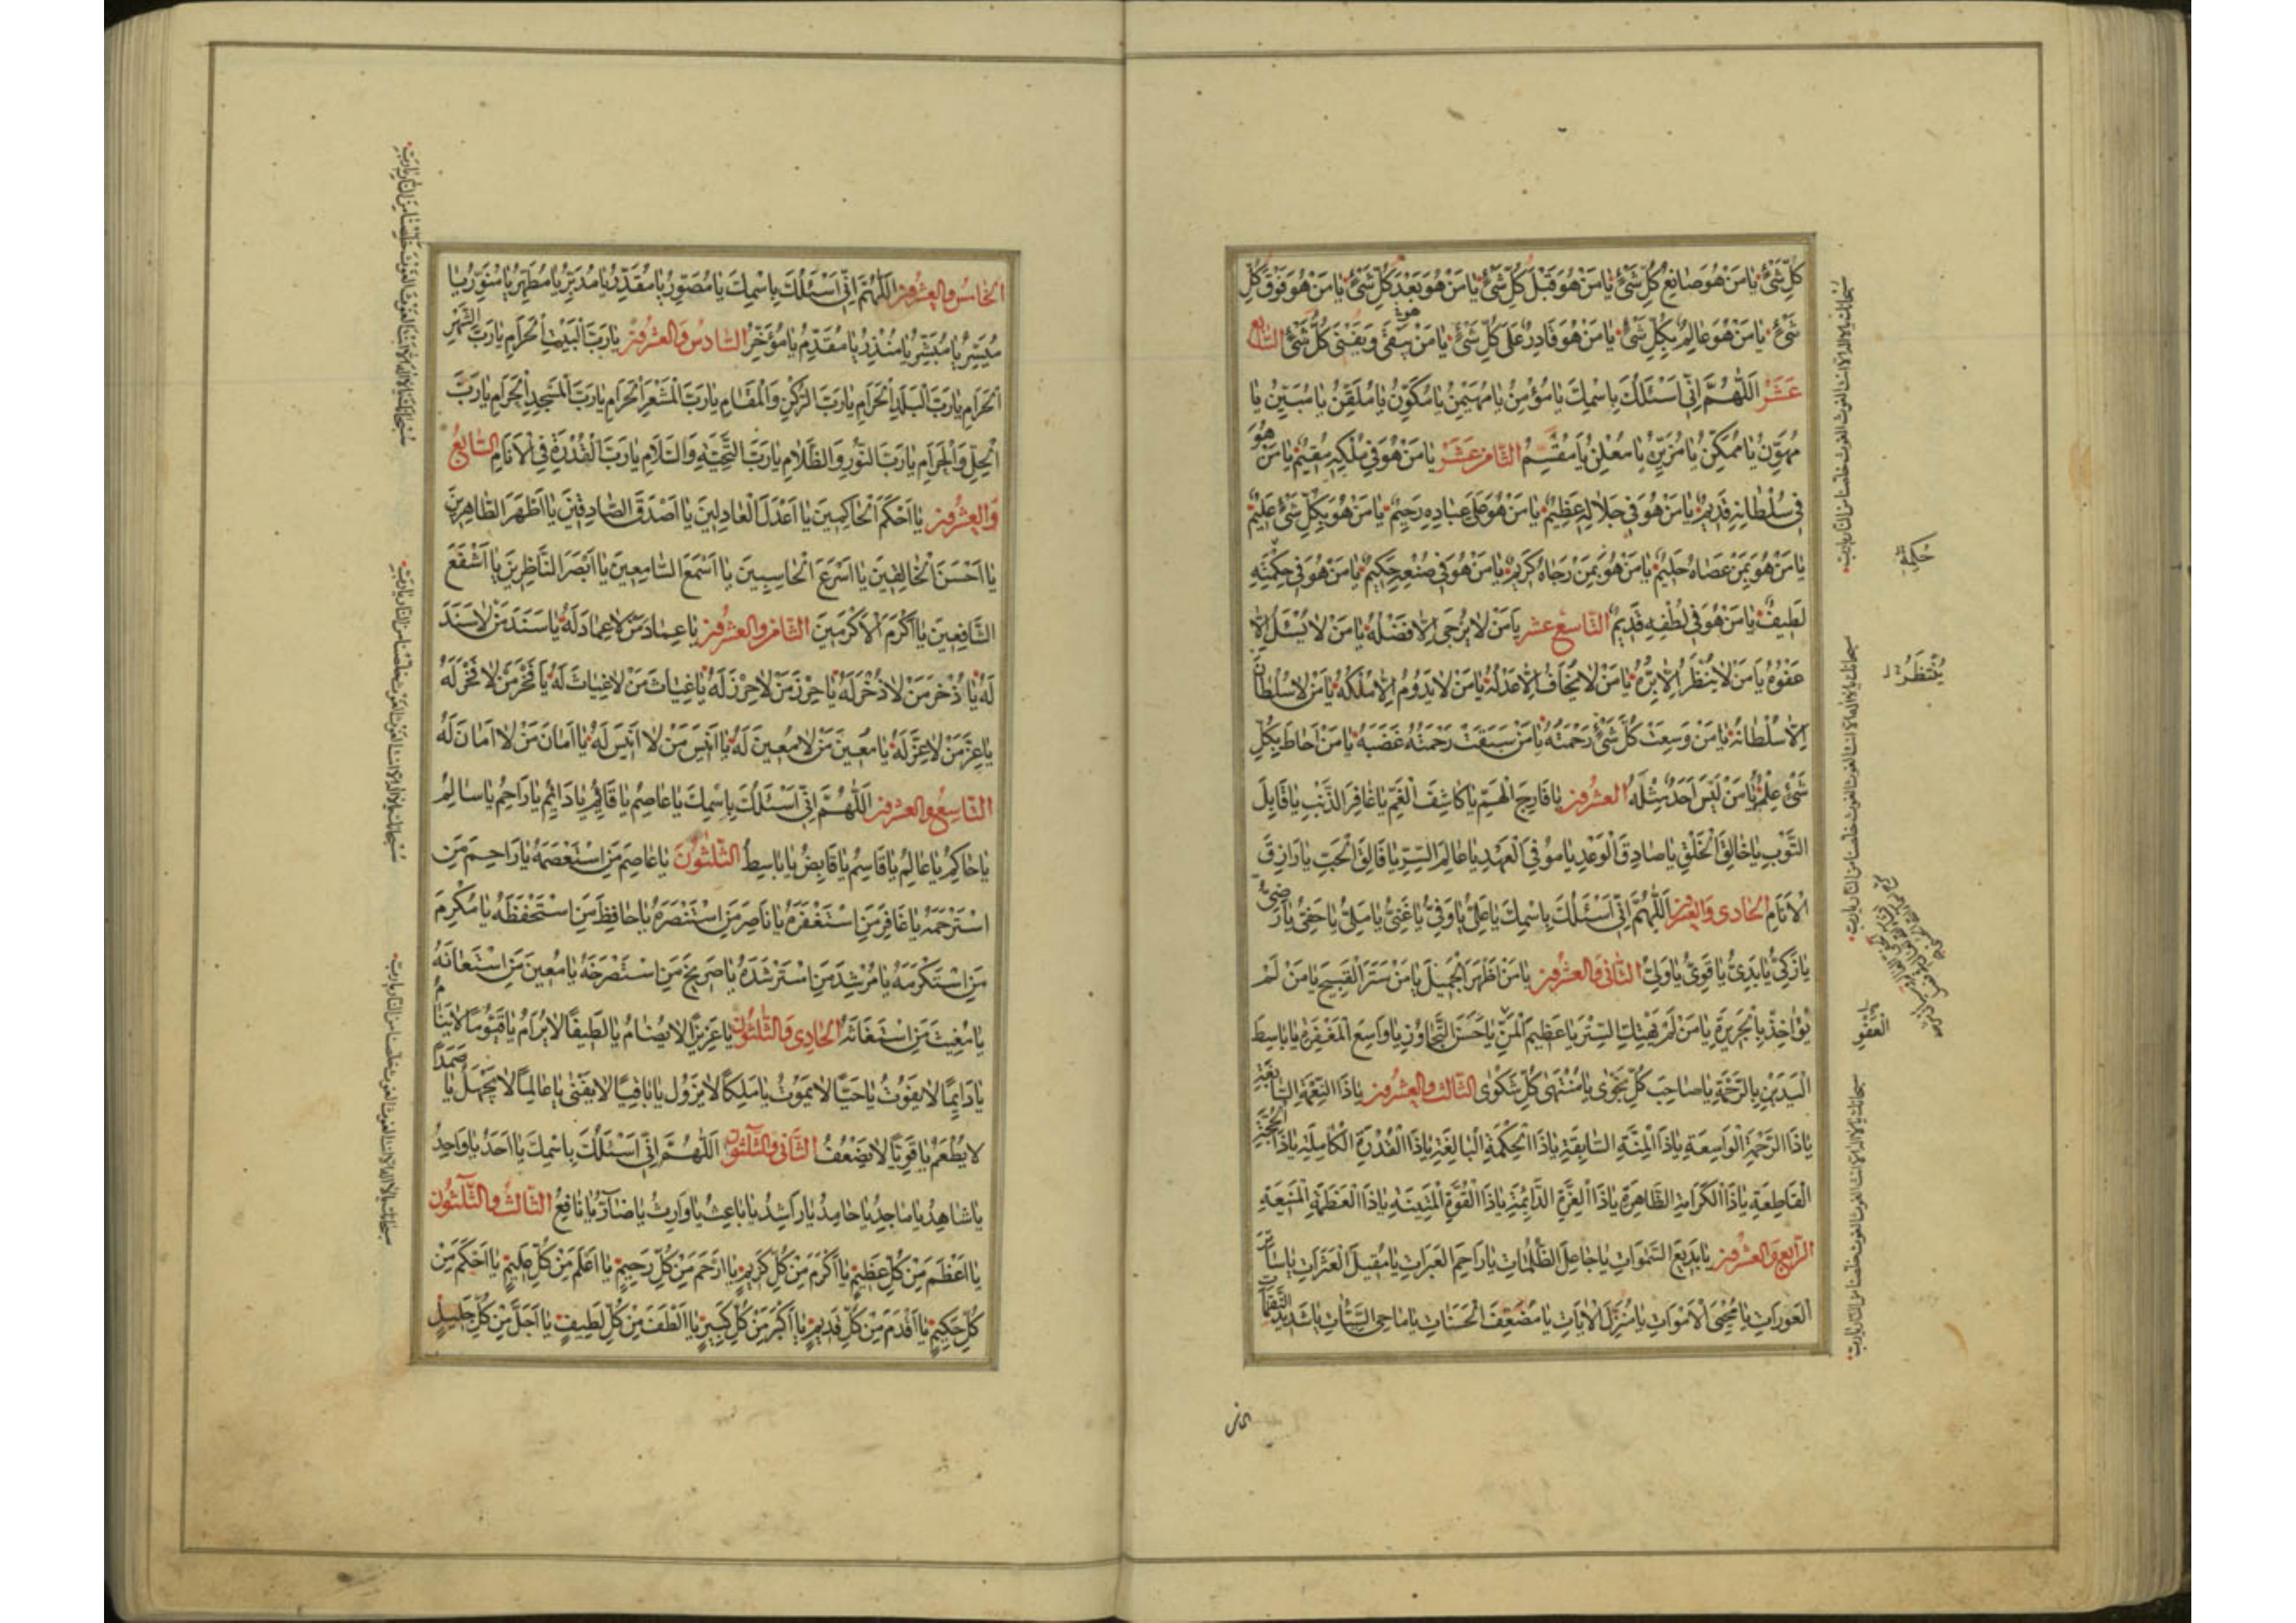 كُلِّ شَيْءٍ يَا مَنْ هُوَ صَانِعُ كُلِّ شَيْءٍ يَا مَنْ هُوَ قَبْلَ كُلِّ شَيْءٍ يَا مَنْ هُوَ بَعْدَ كُلِّ شَيْءٍ يَا مَنْ هُوَ فَوْقَ كُلِّ
شَيْءٍ يَا مَنْ هُوَ عَالِمٌ بِكُلِّ شَيْءٍ يَا مَنْ هُوَ قَادِرٌ عَلَى كُلِّ شَيْءٍ يَا مَنْ هُوَ يَبْقَى وَيَفْنَى كُلُّ شَيْءٍ السَّابِعَ
عَشَرَ اَللّٰهُمَّ اِنِّي اَسْئَلُكَ بِاسْمِكَ يَا مُؤْمِنُ يَا مُهَيْمِنُ يَا مُكَوِّنُ يَا مُلَقِّنُ يَا مُبَيِّنُ يَا
مُهَوِّنُ يَا مُمَكِّنُ يَا مُزَيِّنُ يَا مُعْلِنُ يَا مُقَسِّمُ الثَّامِنَ عَشَرَ يَا مَنْ هُوَ فِي مُلْكِهِ مُقِيمٌ يَا مَنْ هُوَ
فِي سُلْطَانِهِ قَدِيمٌ يَا مَنْ هُوَ فِي جَلَالِهِ عَظِيمٌ يَا مَنْ هُوَ عَلَى عِبَادِهِ رَحِيمٌ يَا مَنْ هُوَ بِكُلِّ شَيْءٍ عَلِيمٌ
يَا مَنْ هُوَ بِمَنْ عَصَاهُ حَلِيمٌ يَا مَنْ هُوَ بِمَنْ رَجَاهُ كَرِيمٌ يَا مَنْ هُوَ فِي صُنْعِهِ حَكِيمٌ يَا مَنْ هُوَ فِي حِكْمَتِهِ
لَطِيفٌ يَا مَنْ هُوَ فِي لُطْفِهِ قَدِيمٌ التَّاسِعَ عَشَرَ يَا مَنْ لَا يُرْجَى اِلَّا فَضْلُهُ يَا مَنْ لَا يُسْئَلُ اِلَّا
عَفْوُهُ يَا مَنْ لَا يُنْظَرُ اِلَّا بِرُّهُ يَا مَنْ لَا يُخَافُ اِلَّا عَدْلُهُ يَا مَنْ لَا يَدُومُ اِلَّا مُلْكُهُ يَا مَنْ لَا سُلْطَانَ
اِلَّا سُلْطَانُهُ يَا مَنْ وَسِعَتْ كُلَّ شَيْءٍ رَحْمَتُهُ يَا مَنْ سَبَقَتْ رَحْمَتُهُ غَضَبَهُ يَا مَنْ اَحَاطَ بِكُلِّ
شَيْءٍ عِلْمُهُ يَا مَنْ لَيْسَ اَحَدٌ مِثْلَهُ الْعِشْرُونَ يَا فَارِجَ الْهَمِّ يَا كَاشِفَ الْغَمِّ يَا غَافِرَ الذَّنْبِ يَا قَابِلَ
التَّوْبِ يَا خَالِقَ الْخَلْقِ يَا صَادِقَ الْوَعْدِ يَا مُوفِيَ الْعَهْدِ يَا عَالِمَ السِّرِّ يَا فَالِقَ الْحَبِّ يَا رَازِقَ
الْاَنَامِ الْحَادِي وَالْعِشْرُونَ اَللّٰهُمَّ اِنِّي اَسْئَلُكَ بِاسْمِكَ يَا عَلِيُّ يَا وَفِيُّ يَا غَنِيُّ يَا مَلِيُّ يَا حَفِيُّ يَا رَضِيُّ
يَا زَكِيُّ يَا بَدِيُّ يَا قَوِيُّ يَا وَلِيُّ الثَّانِي وَالْعِشْرُونَ يَا مَنْ اَظْهَرَ الْجَمِيلَ يَا مَنْ سَتَرَ الْقَبِيحَ يَا مَنْ لَمْ
يُؤَاخِذْ بِالْجَرِيرَةِ يَا مَنْ لَمْ يَهْتِكِ السِّتْرَ يَا عَظِيمَ الْمَنِّ يَا حَسَنَ التَّجَاوُزِ يَا وَاسِعَ الْمَغْفِرَةِ يَا بَاسِطَ
الْيَدَيْنِ بِالرَّحْمَةِ يَا صَاحِبَ كُلِّ نَجْوَى يَا مُنْتَهَى كُلِّ شَكْوَى الثَّالِثُ وَالْعِشْرُونَ يَا ذَا النِّعْمَةِ السَّابِغَةِ
يَا ذَا الرَّحْمَةِ الْوَاسِعَةِ يَا ذَا الْمِنَّةِ السَّابِقَةِ يَا ذَا الْحِكْمَةِ الْبَالِغَةِ يَا ذَا الْقُدْرَةِ الْكَامِلَةِ يَا ذَا الْحُجَّةِ
الْقَاطِعَةِ يَا ذَا الْكَرَامَةِ الظَّاهِرَةِ يَا ذَا الْعِزَّةِ الدَّائِمَةِ يَا ذَا الْقُوَّةِ الْمَتِينَةِ يَا ذَا الْعَظَمَةِ الْمَنِيعَةِ
الرَّابِعُ وَالْعِشْرُونَ يَا بَدِيعَ السَّمٰوَاتِ يَا جَاعِلَ الظُّلُمَاتِ يَا رَاحِمَ الْعَبَرَاتِ يَا مُقِيلَ الْعَثَرَاتِ يَا سَاتِرَ
الْعَوْرَاتِ يَا مُحْيِيَ الْاَمْوَاتِ يَا مُنْزِلَ الْاٰيَاتِ يَا مُضَعِّفَ الْحَسَنَاتِ يَا مَاحِيَ السَّيِّئَاتِ يَا شَدِيدَ النَّقِمَاتِ
حِكْمَتِهِ
يُنْتَظَرُ
سبحانك يا لا اله الا انت الغوث الغوث خلصنا من النار يا رب
سبحانك يا لا اله الا انت الغوث الغوث خلصنا من النار يا رب
سبحانك يا لا اله الا انت الغوث الغوث خلصنا من النار يا رب
الْخَامِسُ وَالْعِشْرُونَ اَللّٰهُمَّ اِنِّي اَسْئَلُكَ بِاسْمِكَ يَا مُصَوِّرُ يَا مُقَدِّرُ يَا مُدَبِّرُ يَا مُطَهِّرُ يَا مُنَوِّرُ يَا
مُيَسِّرُ يَا مُبَشِّرُ يَا مُنْذِرُ يَا مُقَدِّمُ يَا مُؤَخِّرُ السَّادِسُ وَالْعِشْرُونَ يَا رَبَّ الْبَيْتِ الْحَرَامِ يَا رَبَّ الشَّهْرِ
الْحَرَامِ يَا رَبَّ الْبَلَدِ الْحَرَامِ يَا رَبَّ الرُّكْنِ وَالْمَقَامِ يَا رَبَّ الْمَشْعَرِ الْحَرَامِ يَا رَبَّ الْمَسْجِدِ الْحَرَامِ يَا رَبَّ
الْحِلِّ وَالْحَرَامِ يَا رَبَّ النُّورِ وَالظَّلَامِ يَا رَبَّ التَّحِيَّةِ وَالسَّلَامِ يَا رَبَّ الْقُدْرَةِ فِي الْاَنَامِ السَّابِعُ
وَالْعِشْرُونَ يَا اَحْكَمَ الْحَاكِمِينَ يَا اَعْدَلَ الْعَادِلِينَ يَا اَصْدَقَ الصَّادِقِينَ يَا اَطْهَرَ الطَّاهِرِينَ
يَا اَحْسَنَ الْخَالِقِينَ يَا اَسْرَعَ الْحَاسِبِينَ يَا اَسْمَعَ السَّامِعِينَ يَا اَبْصَرَ النَّاظِرِينَ يَا اَشْفَعَ
الشَّافِعِينَ يَا اَكْرَمَ الْاَكْرَمِينَ الثَّامِنُ وَالْعِشْرُونَ يَا عِمَادَ مَنْ لَا عِمَادَ لَهُ يَا سَنَدَ مَنْ لَا سَنَدَ
لَهُ يَا ذُخْرَ مَنْ لَا ذُخْرَ لَهُ يَا حِرْزَ مَنْ لَا حِرْزَ لَهُ يَا غِيَاثَ مَنْ لَا غِيَاثَ لَهُ يَا فَخْرَ مَنْ لَا فَخْرَ لَهُ
يَا عِزَّ مَنْ لَا عِزَّ لَهُ يَا مُعِينَ مَنْ لَا مُعِينَ لَهُ يَا اَنِيسَ مَنْ لَا اَنِيسَ لَهُ يَا اَمَانَ مَنْ لَا اَمَانَ لَهُ
التَّاسِعُ وَالْعِشْرُونَ اَللّٰهُمَّ اِنِّي اَسْئَلُكَ بِاسْمِكَ يَا عَاصِمُ يَا قَائِمُ يَا دَائِمُ يَا رَاحِمُ يَا سَالِمُ
يَا حَاكِمُ يَا عَالِمُ يَا قَاسِمُ يَا قَابِضُ يَا بَاسِطُ الثَّلٰثُونَ يَا عَاصِمَ مَنِ اسْتَعْصَمَهُ يَا رَاحِمَ مَنِ
اسْتَرْحَمَهُ يَا غَافِرَ مَنِ اسْتَغْفَرَهُ يَا نَاصِرَ مَنِ اسْتَنْصَرَهُ يَا حَافِظَ مَنِ اسْتَحْفَظَهُ يَا مُكْرِمَ
مَنِ اسْتَكْرَمَهُ يَا مُرْشِدَ مَنِ اسْتَرْشَدَهُ يَا صَرِيخَ مَنِ اسْتَصْرَخَهُ يَا مُعِينَ مَنِ اسْتَعَانَهُ
يَا مُغِيثَ مَنِ اسْتَغَاثَهُ الْحَادِي وَالثَّلٰثُونَ يَا عَزِيزًا لَا يُضَامُ يَا لَطِيفًا لَا يُرَامُ يَا قَيُّومًا لَا يَنَامُ
يَا دَايِمًا لَا يَفُوتُ يَا حَيًّا لَا يَمُوتُ يَا مَلِكًا لَا يَزُولُ يَا بَاقِيًا لَا يَفْنَى يَا عَالِمًا لَا يَجْهَلُ يَا صَمَدًا
لَا يُطْعَمُ يَا قَوِيًّا لَا يَضْعُفُ الثَّانِي وَالثَّلٰثُونَ اَللّٰهُمَّ اِنِّي اَسْئَلُكَ بِاسْمِكَ يَا اَحَدُ يَا وَاحِدُ
يَا شَاهِدُ يَا مَاجِدُ يَا حَامِدُ يَا رَاشِدُ يَا بَاعِثُ يَا وَارِثُ يَا ضَارُّ يَا نَافِعُ الثَّالِثُ وَالثَّلٰثُونَ
يَا اَعْظَمَ مِنْ كُلِّ عَظِيمٍ يَا اَكْرَمَ مِنْ كُلِّ كَرِيمٍ يَا اَرْحَمَ مِنْ كُلِّ رَحِيمٍ يَا اَعْلَمَ مِنْ كُلِّ عَلِيمٍ يَا اَحْكَمَ مِنْ
كُلِّ حَكِيمٍ يَا اَقْدَمَ مِنْ كُلِّ قَدِيمٍ يَا اَكْبَرَ مِنْ كُلِّ كَبِيرٍ يَا اَلْطَفَ مِنْ كُلِّ لَطِيفٍ يَا اَجَلَّ مِنْ كُلِّ جَلِيلٍ
سبحانك يا لا اله الا انت الغوث الغوث خلصنا من النار يا رب
سبحانك يا لا اله الا انت الغوث الغوث خلصنا من النار يا رب
سبحانك يا لا اله الا انت الغوث الغوث خلصنا من النار يا رب